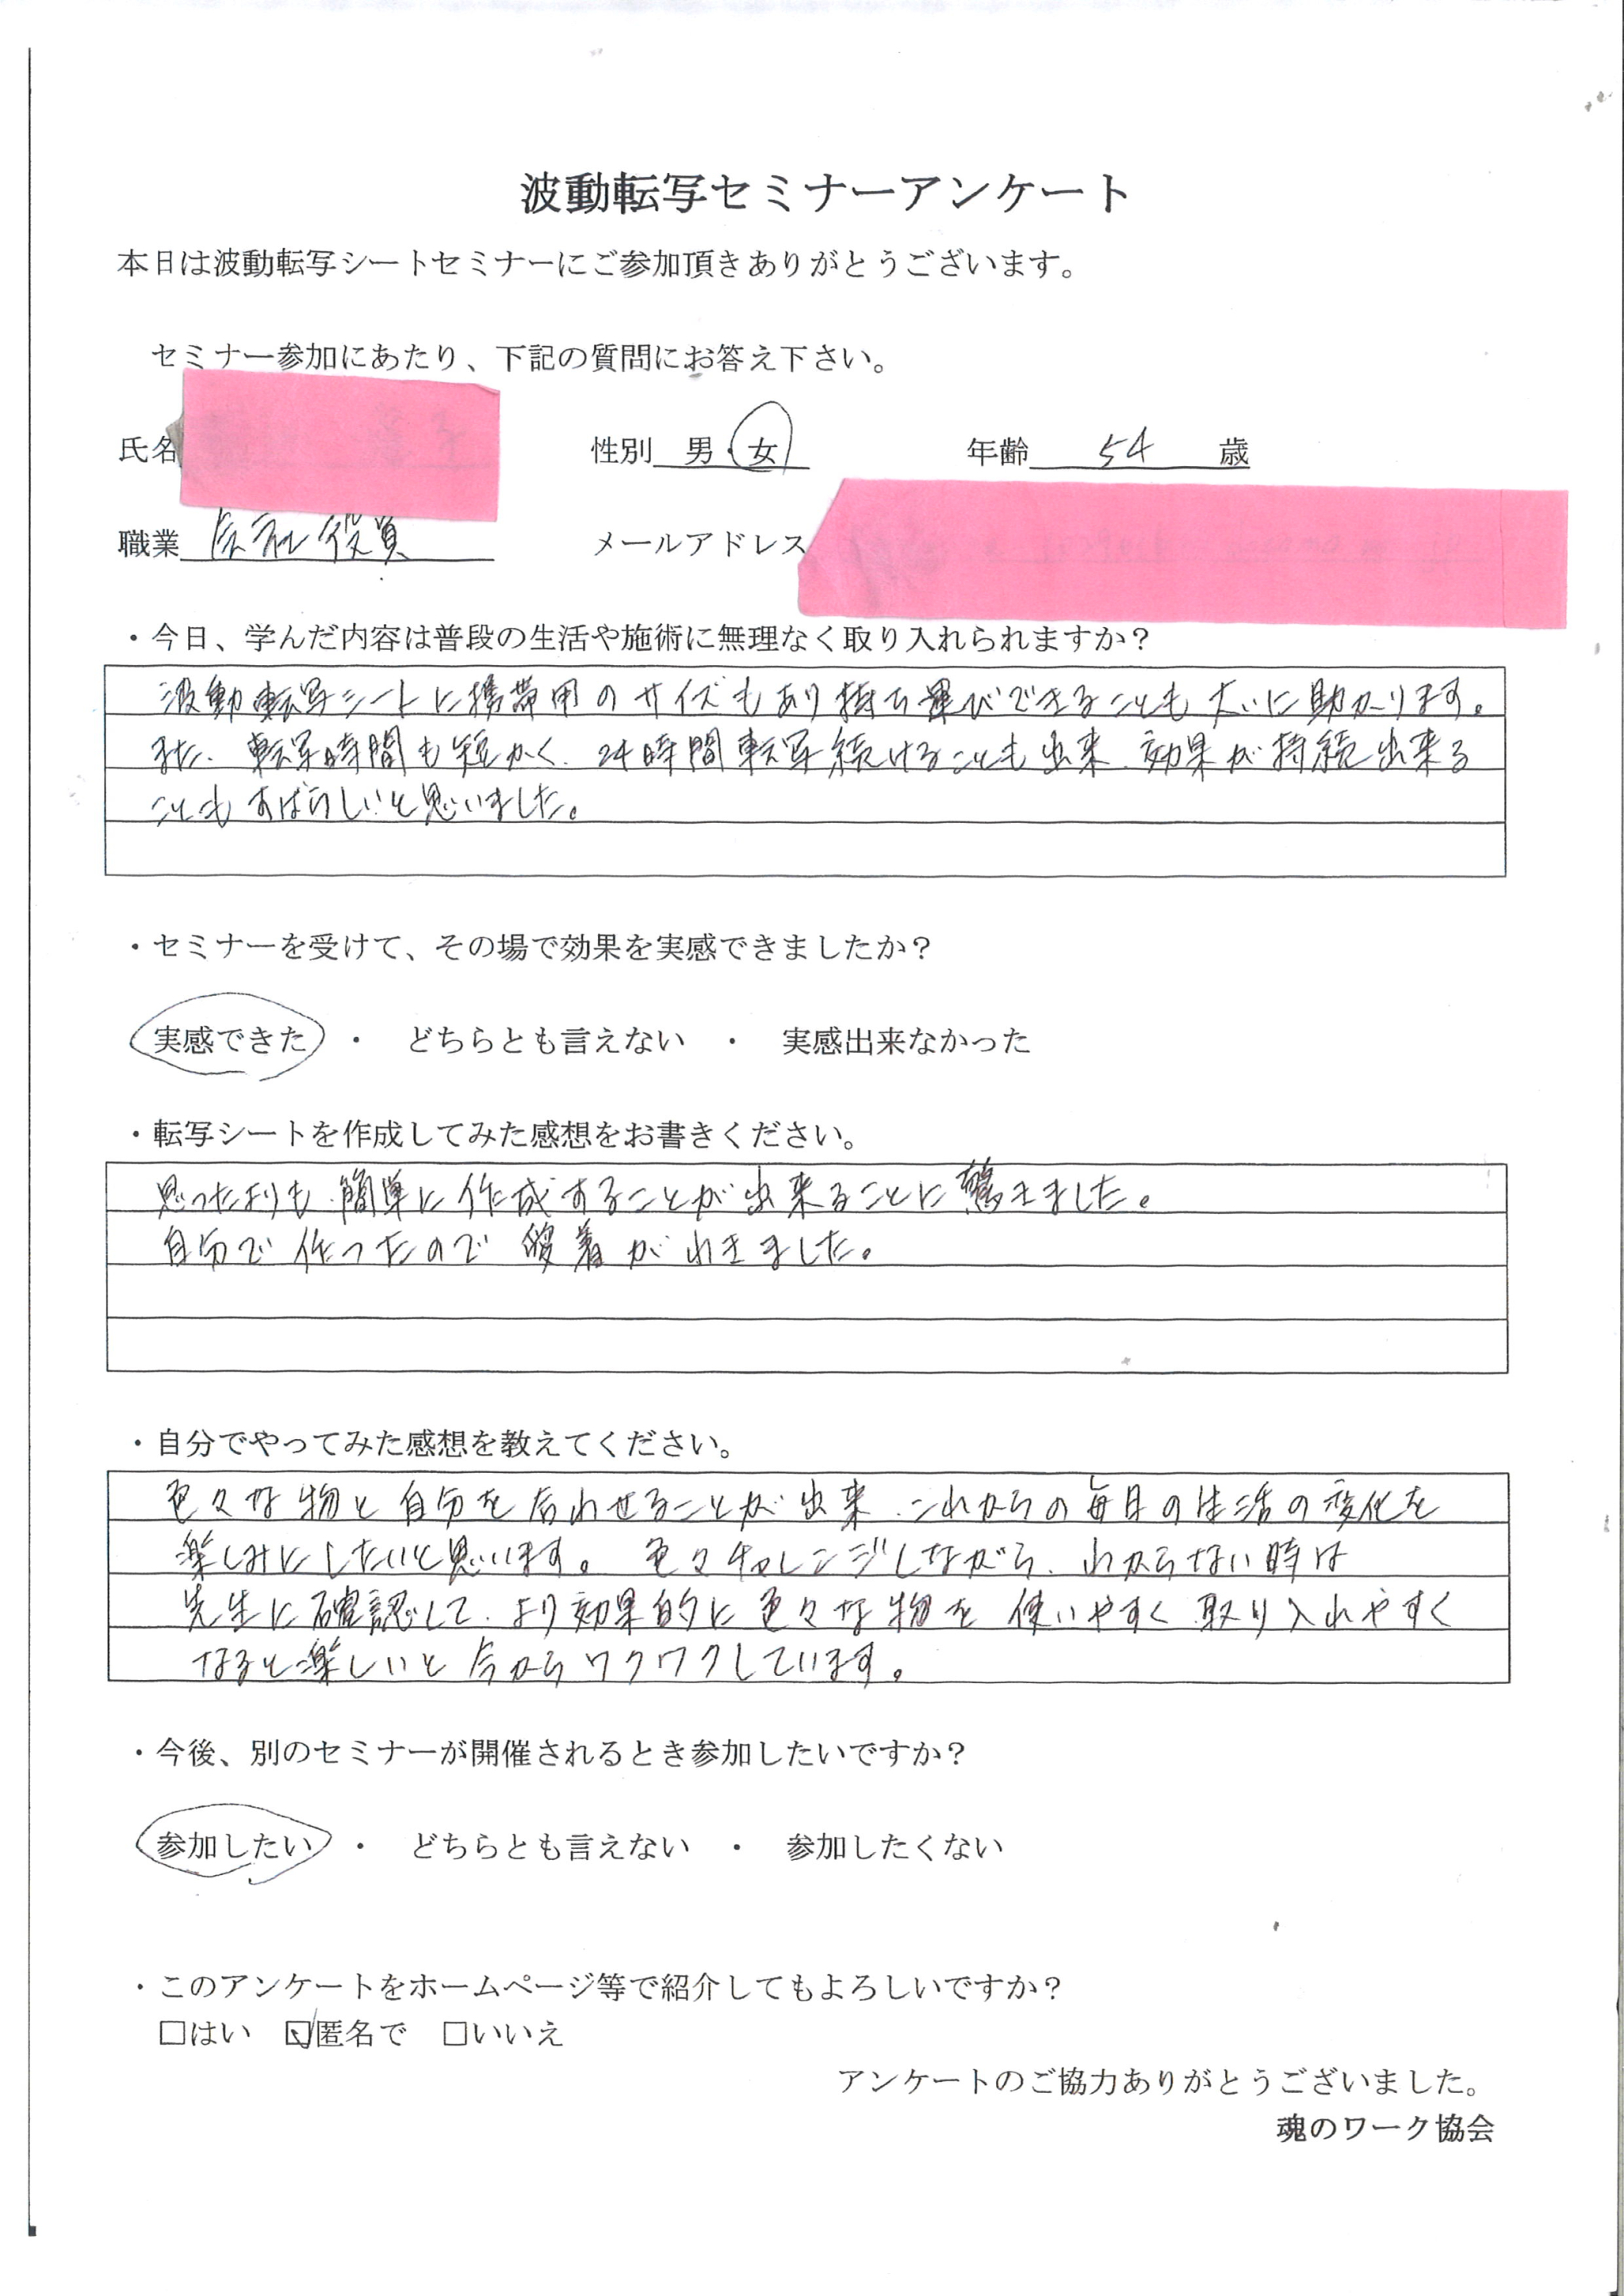 波動転写セミナーアンケート
本日は波動転写シートセミナーにご参加頂きありがとうございます。
セミナー参加にあたり、下記の質問にお答え下さい。
氏名 性別 男・女 年齢 54 歳
職業 会社役員 メールアドレス
・今日、学んだ内容は普段の生活や施術に無理なく取り入れられますか？
波動転写シートに携帯用のサイズもあり持ち運びできることも大いに助かります。
また、転写時間も短かく、24時間転写続けることも出来、効果が持続出来る
こともすばらしいと思いました。
・セミナーを受けて、その場で効果を実感できましたか？
実感できた ・ どちらとも言えない ・ 実感出来なかった
・転写シートを作成してみた感想をお書きください。
思ったよりも、簡単に作成することが出来ることに驚きました。
自分で作ったので愛着がわきました。
・自分でやってみた感想を教えてください。
色々な物と自分を合わせることが出来、これからの毎日の生活の変化を
楽しみにしたいと思います。色々チャレンジしながら、わからない時は
先生に確認して、より効果的に色々な物を使いやすく取り入れやすく
なると楽しいと今からワクワクしています。
・今後、別のセミナーが開催されるとき参加したいですか？
参加したい ・ どちらとも言えない ・ 参加したくない
・このアンケートをホームページ等で紹介してもよろしいですか？
□はい ☑匿名で □いいえ
アンケートのご協力ありがとうございました。
魂のワーク協会